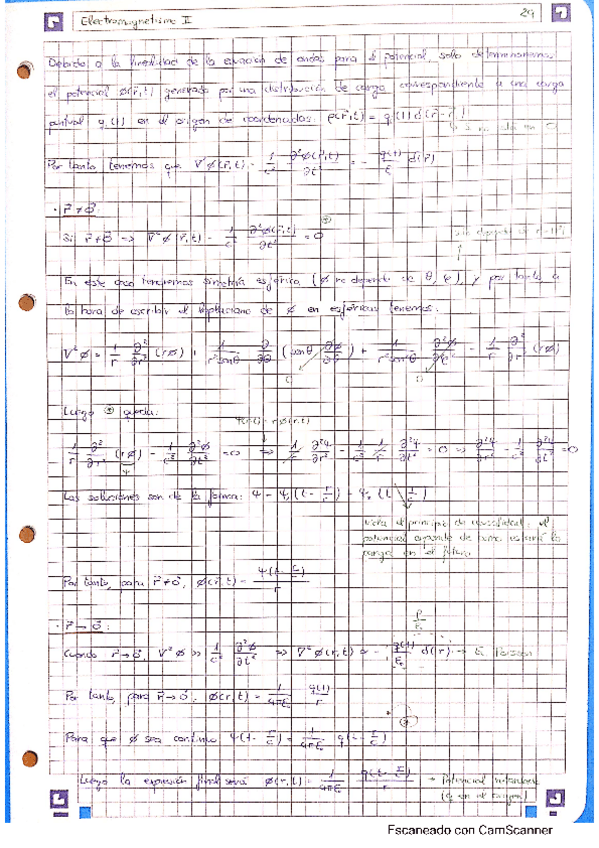 Electromagnetismo II
29
Debido a la linealidad de la ecuación de ondas para el potencial, solo determinaremos
el potencial φ(r⃗,t) generado por una distribución de carga correspondiente a una carga
puntual q(t) en el origen de coordenadas: ρ(r⃗,t) = q(t) δ(r⃗ - r⃗')
Por tanto tenemos que ∇²φ(r⃗,t) - 1/c² ∂²φ(r⃗,t)/∂t² = - q(t)/ε₀ δ(r⃗)
· r⃗ ≠ 0⃗
Si r⃗ ≠ 0⃗ => ∇²φ(r⃗,t) - 1/c² ∂²φ(r⃗,t)/∂t² = 0
En este caso tendremos simetría esférica (φ no depende de θ, φ), y por tanto, a
la hora de escribir el laplaciano de φ en esféricas tenemos:
∇²φ = 1/r ∂²/∂r² (rφ) + 1/r²senθ ∂/∂θ (senθ ∂φ/∂θ) + 1/r²sen²θ ∂²φ/∂φ² = 1/r ∂²/∂r² (rφ)
0 0
Luego queda:
Ψ(r,t) = rφ(r,t)
1/r ∂²/∂r² (rφ) - 1/c² ∂²φ/∂t² = 0 => 1/r ∂²Ψ/∂r² - 1/c² 1/r ∂²Ψ/∂t² = 0 => ∂²Ψ/∂r² - 1/c² ∂²Ψ/∂t² = 0
Ψ
Las soluciones son de la forma: Ψ = Ψ₁(t - r/c) + Ψ₂(t + r/c)
Viola el principio de causalidad: el
potencial depende de como estará la
carga en el futuro
Por tanto, para r⃗ ≠ 0⃗, φ(r⃗,t) = Ψ(t - r/c)/r
· r⃗ → 0⃗:
Cuando r⃗ → 0⃗, ∇²φ >> 1/c² ∂²φ/∂t² => ∇²φ(r,t) ≈ - q(t)/ε₀ δ(r⃗) → E. Poisson
Por tanto, para r⃗ → 0⃗, φ(r,t) = 1/4πε₀ q(t)/r
Para que φ sea continuo Ψ(t - r/c) = 1/4πε₀ q(t - r/c)
Luego la expresión final será φ(r,t) = 1/4πε₀ q(t - r/c)/r → Potencial retardado
(q en el origen)
Escaneado con CamScanner